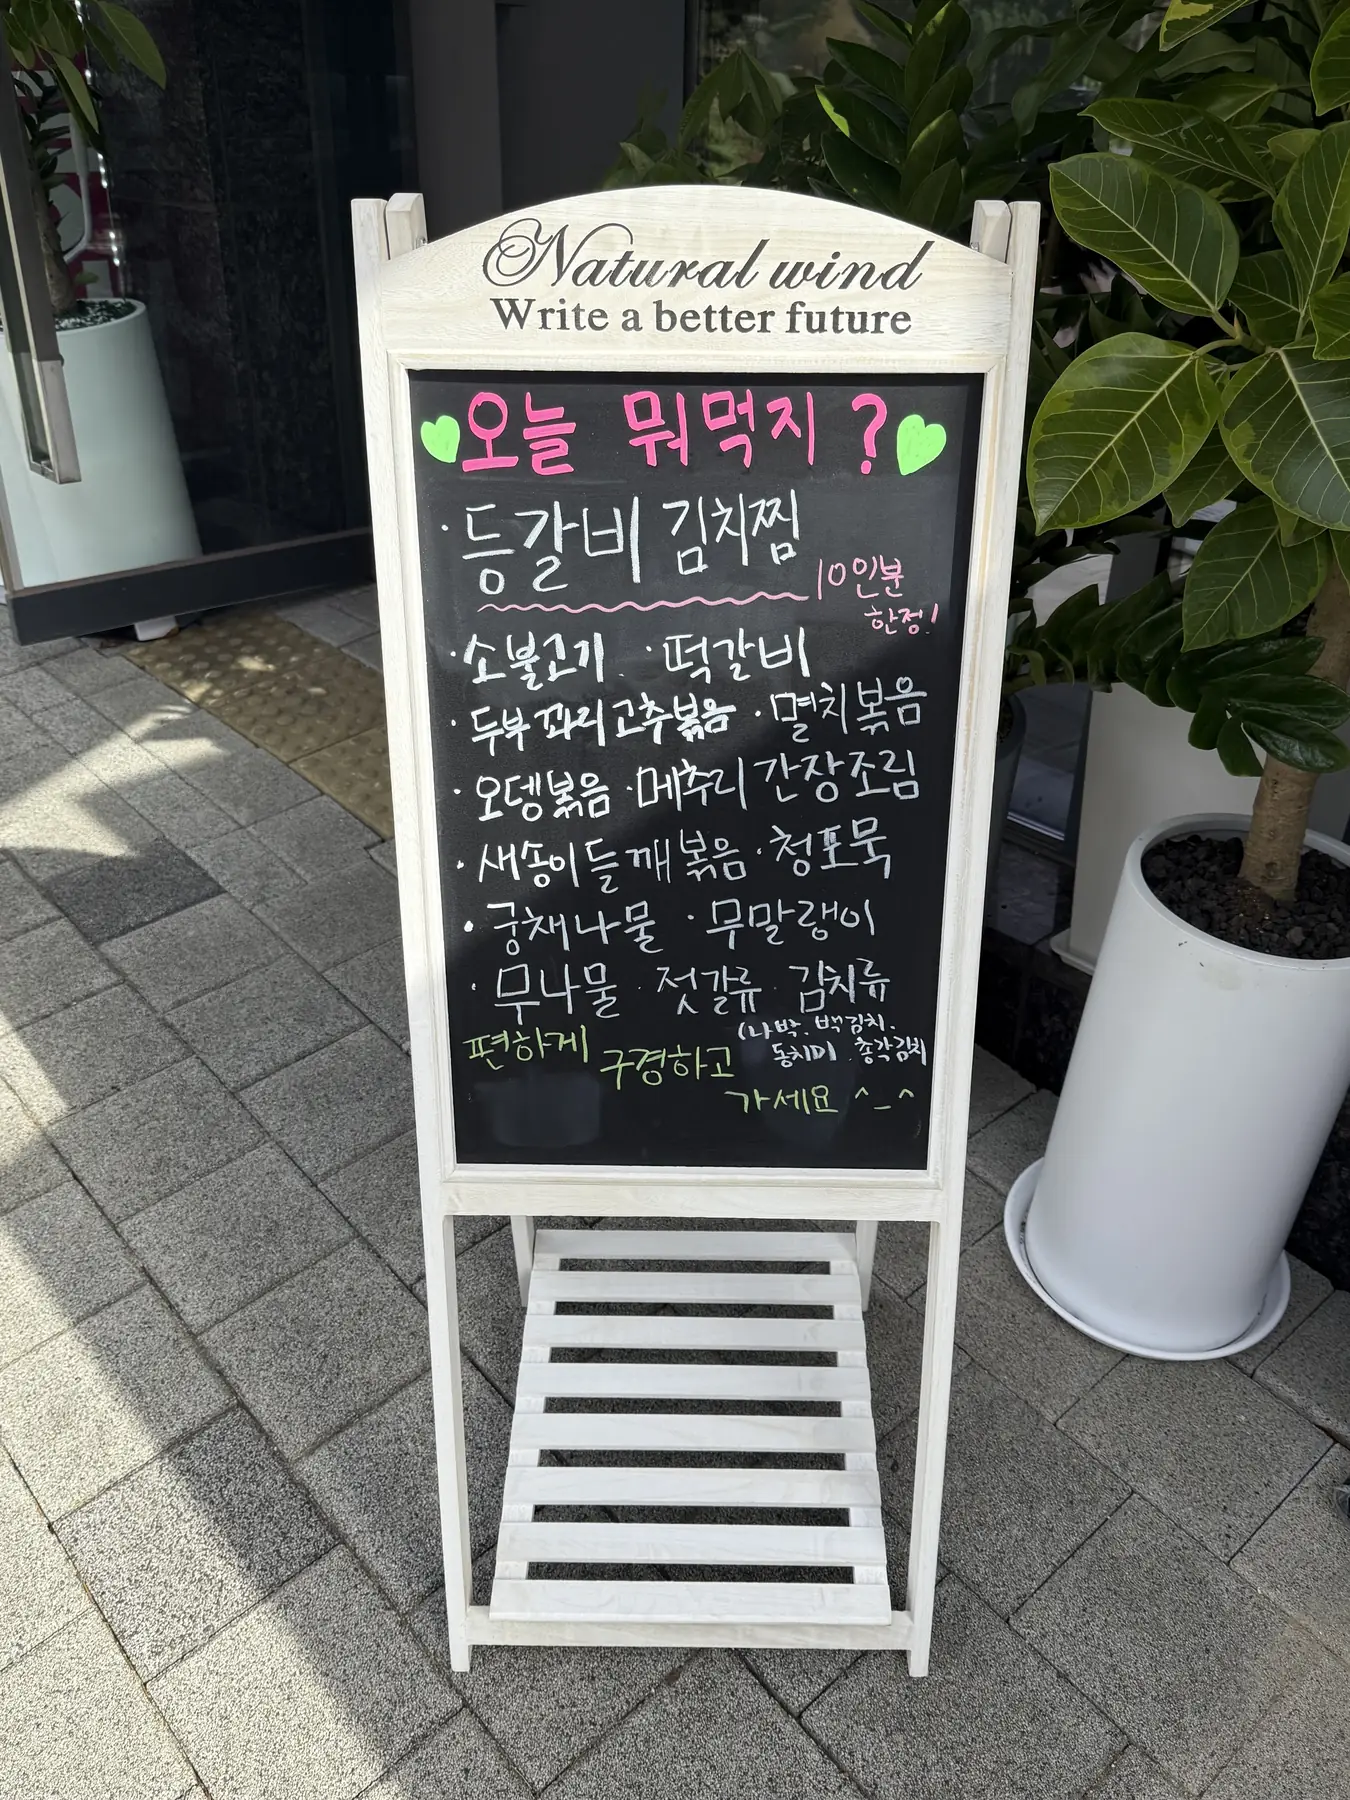 Natural wind
Write a better future
오늘 뭐먹지?
· 등갈비 김치찜
10인분
한정!
· 소불고기 · 떡갈비
· 두부 꽈리고추볶음 · 멸치볶음
· 오뎅볶음 · 메추리 간장조림
· 새송이들깨볶음 · 청포묵
· 궁채나물 · 무말랭이
· 무나물 · 젓갈류 · 김치류
(나박. 백김치.
동치미. 총각김치
편하게
구경하고
가세요 ^_^